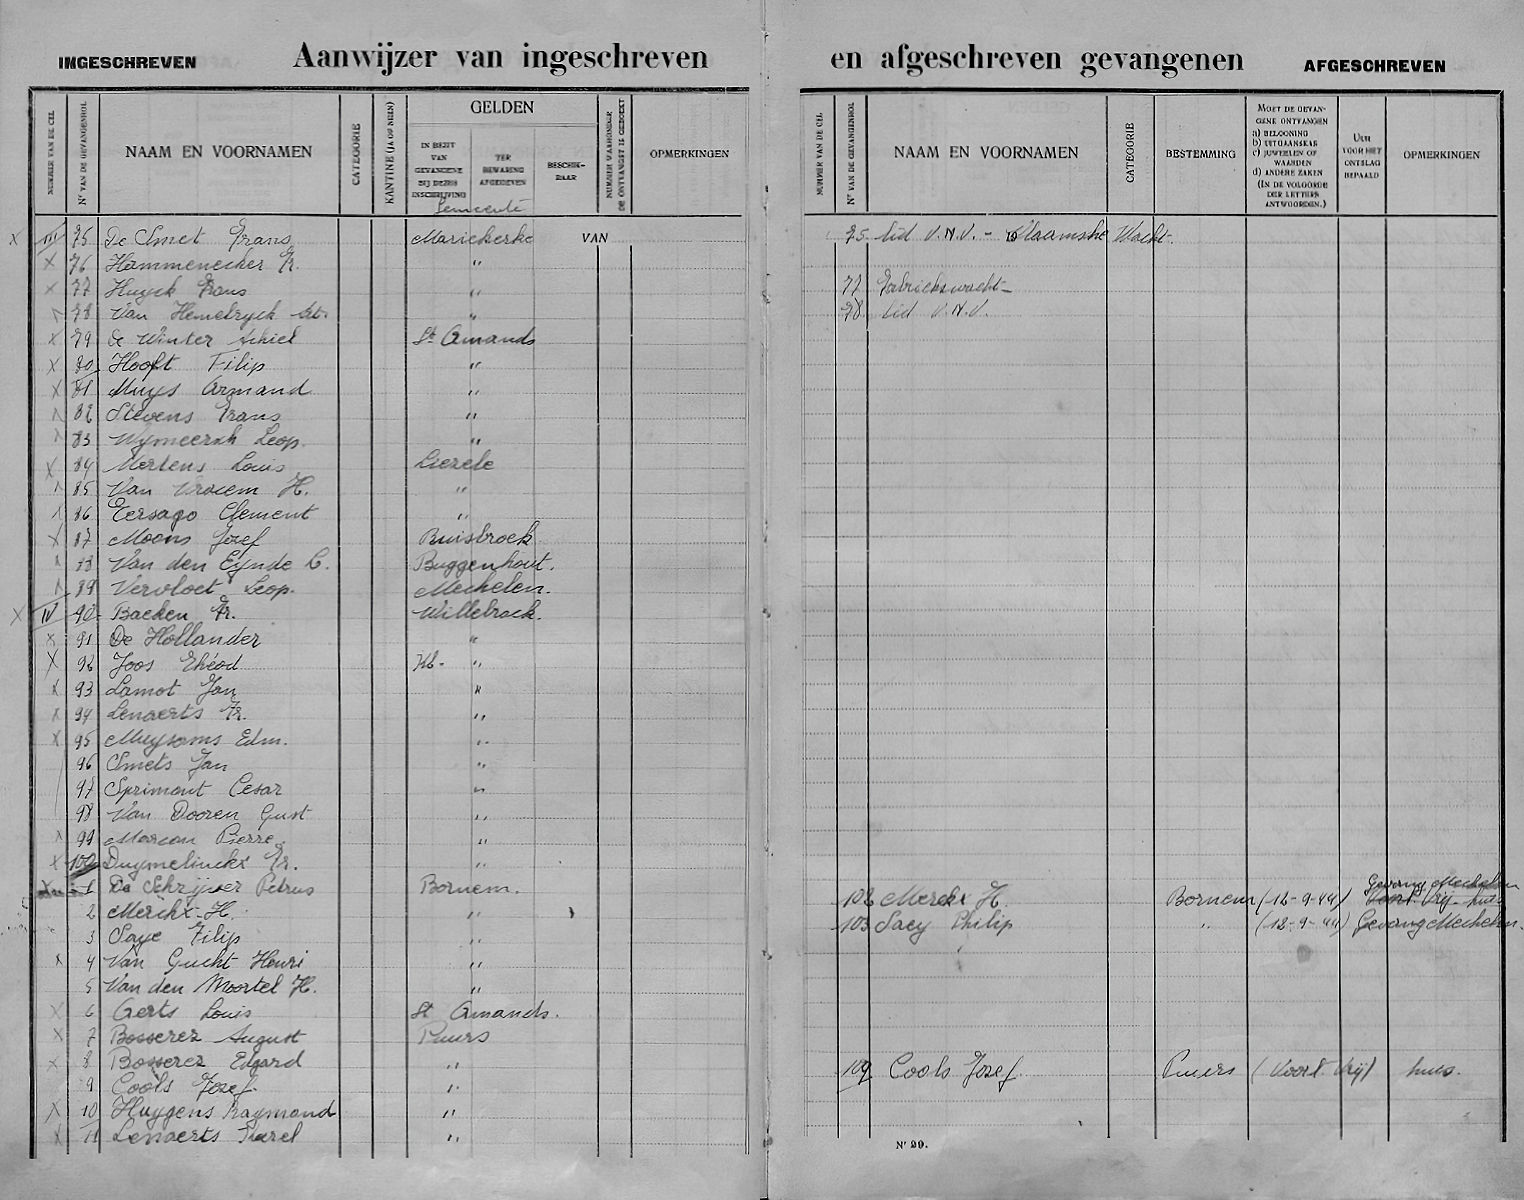 INGESCHREVEN Aanwijzer van ingeschreven en afgeschreven gevangenen AFGESCHREVEN
NUMMER VAN DE CEL
Nr VAN DE GEVANGENROL
NAAM EN VOORNAMEN
CATEGORIE
KANTINE (JA OF NEEN)
GELDEN
IN BEZIT VAN GEVANGENE BIJ DEZES INSCHRIJVING
TER BEWARING AFGEGEVEN
BESCHIK-BAAR
NUMMER WAARONDER DE ONTVANGST IS GEBOEKT
OPMERKINGEN
Gemeente
NUMMER VAN DE CEL
Nr VAN DE GEVANGENROL
NAAM EN VOORNAMEN
CATEGORIE
BESTEMMING
MOET DE GEVAN-
GENE ONTVANGEN
a) BELOONING
b) UITGAANSKAS
c) JUWEELEN OF
WAARDEN
d) ANDERE ZAKEN
(IN DE VOLGORDE
DER LETTERS
ANTWOORDEN.)
UUR
VOOR HET
ONTSLAG
BEPAALD
OPMERKINGEN
x III 75 De Smet Frans Mariekerke VAN 75 lid V.N.V. - Vlaamshe Wacht.
x 76 Hammenecker Fr. "
x 77 Huyck Frans " 77 Fabriekswacht
x 78 Van Hemelryck " 78 lid V.N.V.
x 79 de Winter Achiel St. Amands
x 80 Hooft Filip "
x 81 Muys Armand "
82 Stevens Frans "
83 Wymeersch Leop. "
x 84 Mertens Louis Liezele
85 Van Vrocem H. "
86 Tersago Clement "
x 87 Moons Jozef Ruisbroek
88 Van den Eynde C. Buggenhout.
89 Vervloet Leop. Mechelen.
x IV 90 Baeken Fr. Willebroek.
x 91 De Hollander "
x 92 Joos "
x 93 Lamot Jan "
x 94 Lenaerts Fr. "
x 95 Muysoms Edm. "
96 Smets Jan "
97 Sprimont Cesar "
98 Van Dooren Gust "
x 99 Marcou Pierre "
x 100 Duymelinckx Fr. "
1 De Schrijver Petrus Bornem.
2 Merckx H. " 102 Merckx H. Bornem (12-9-44) Gevang Mechelen
3 Saye Filip " 103 Saey Philip " (12-9-44) Gevang Mechelen.
x 4 Van Gucht Henri "
5 Van den Moortel H. "
x 6 Gerts Louis St Amands.
x 7 Bosserez August Puurs
x 8 Bosserez Edgard "
9 Cools Jozef " 109 Cools Jozef Puurs (Voort. Vrij) huis.
x 10 Huygens Raymond "
x 11 Lenaerts Karel "
Nr 29.